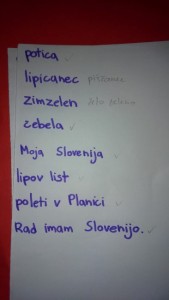 potica
lipicanec
zimzelen
čebela
Moja Slovenija
lipov list
poleti v Planici
Rad imam Slovenijo.